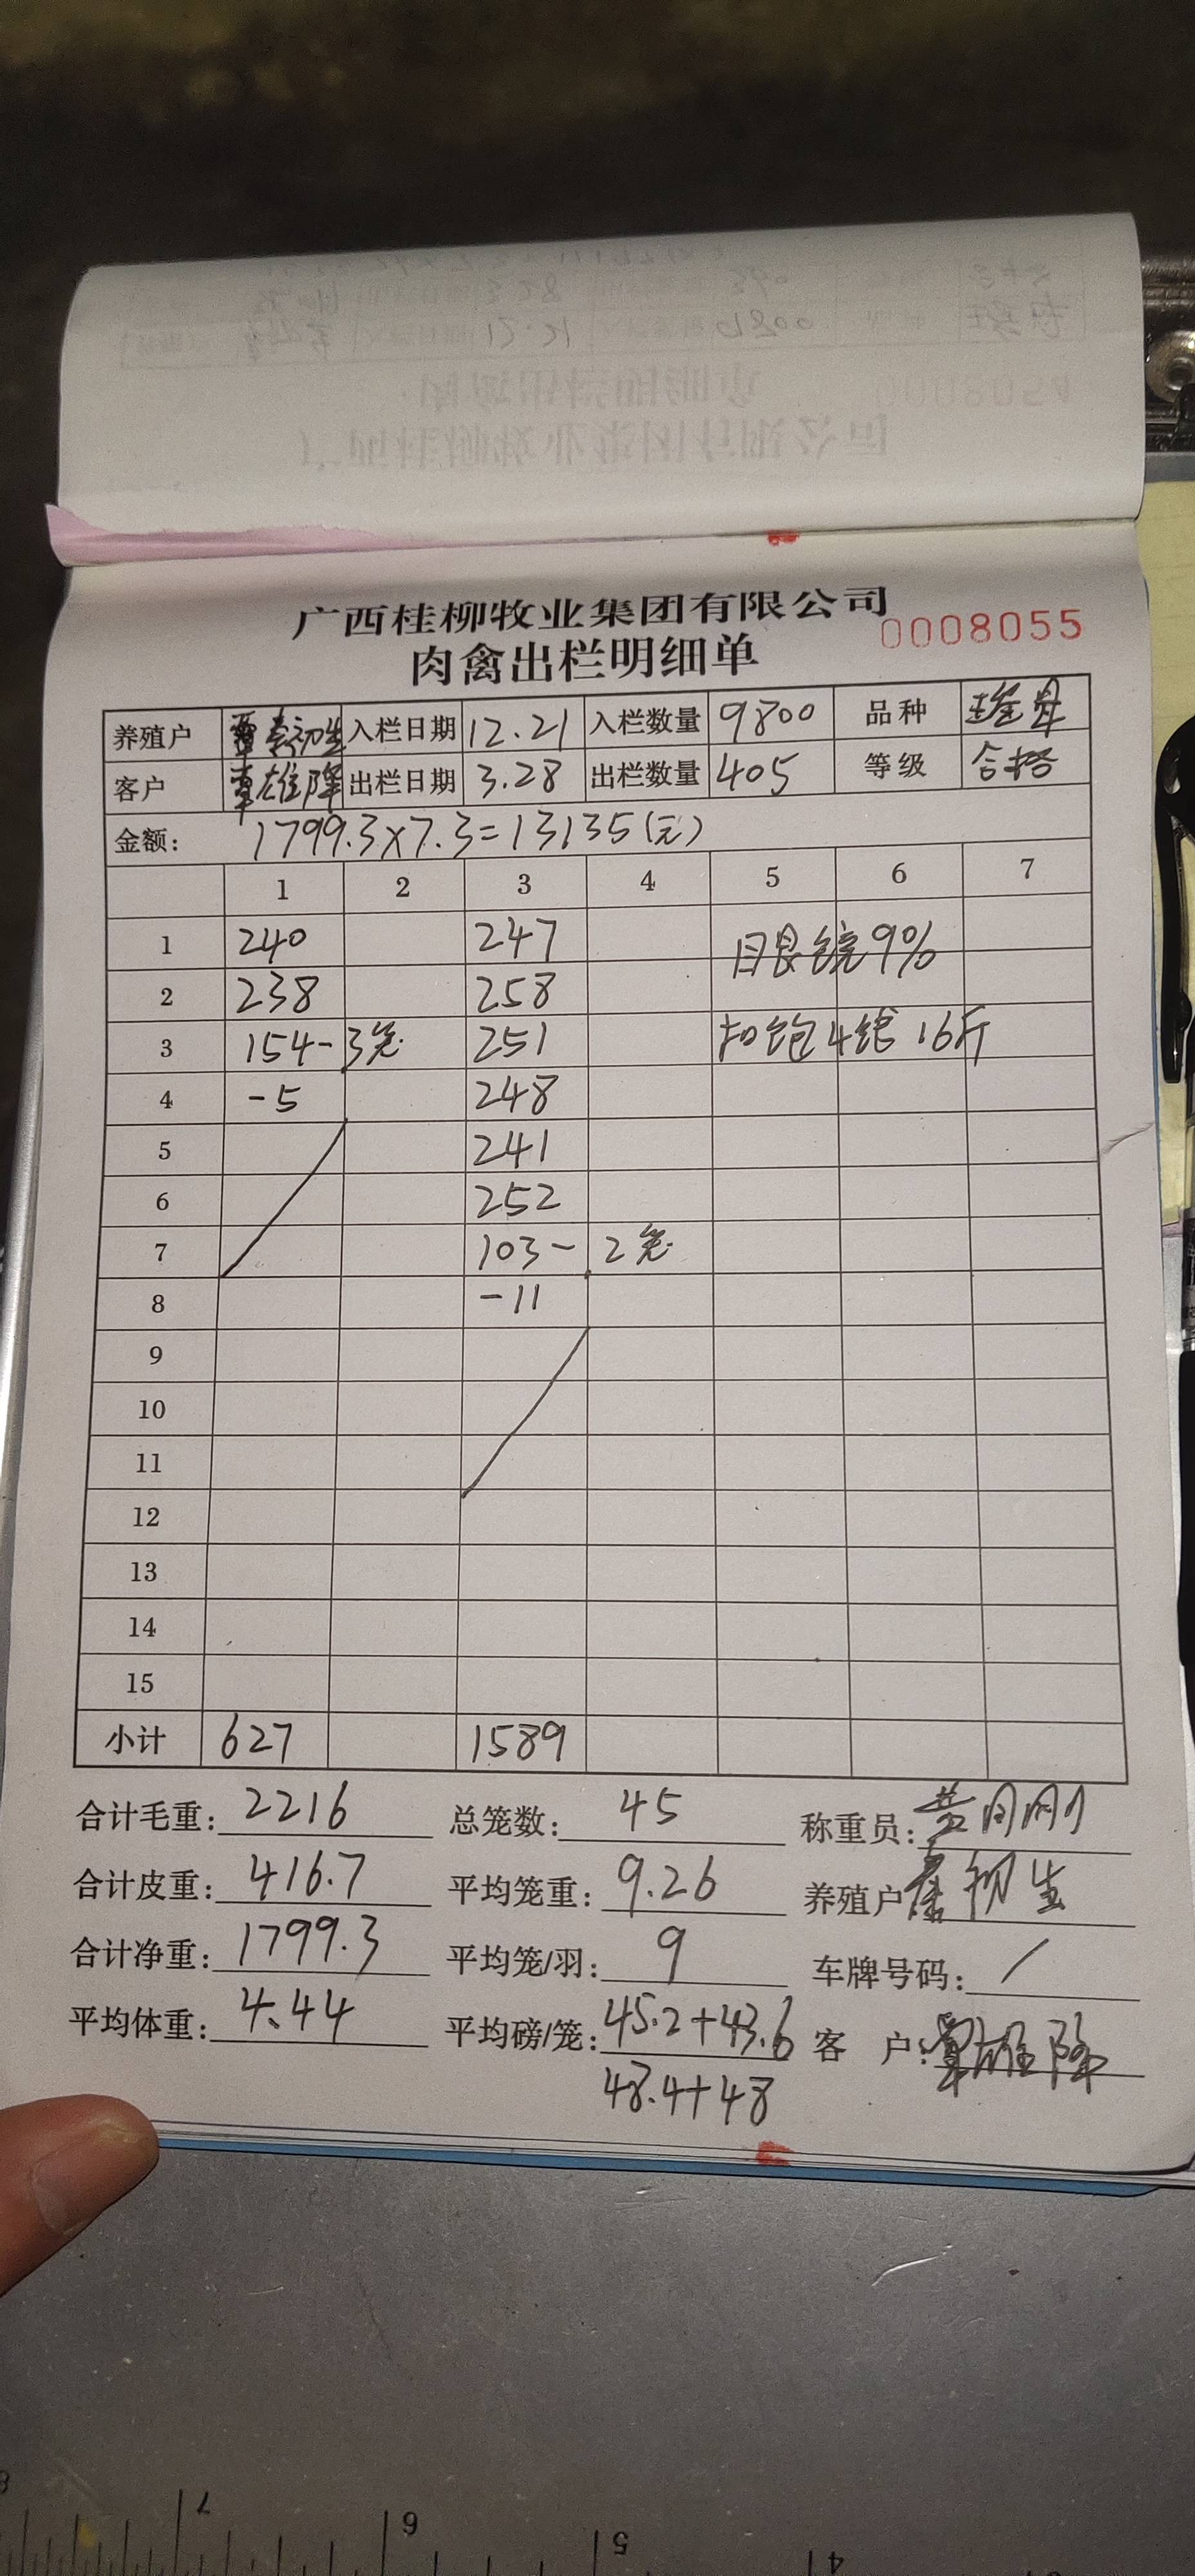 广西桂柳牧业集团有限公司
0008055
肉禽出栏明细单
养殖户 入栏日期 12.21 入栏数量 9800 品种
客户 覃雄降 出栏日期 3.28 出栏数量 405 等级 合格
金额: 1799.3×7.3=13135(元)
1 2 3 4 5 6 7
1 240 247 眼镜9%
2 238 258
3 154-3笼 251 扣饱4线16斤
4 -5 248
5 241
6 252
7 103-2笼
8 -11
9
10
11
12
13
14
15
小计 627 1589
合计毛重: 2216 总笼数: 45 称重员:
合计皮重: 416.7 平均笼重: 9.26 养殖户 初生
合计净重: 1799.3 平均笼/羽: 9 车牌号码: /
平均体重: 4.44 平均磅/笼: 45.2+43.6 客 户: 覃雄降
48.4+48
7 6 5 4